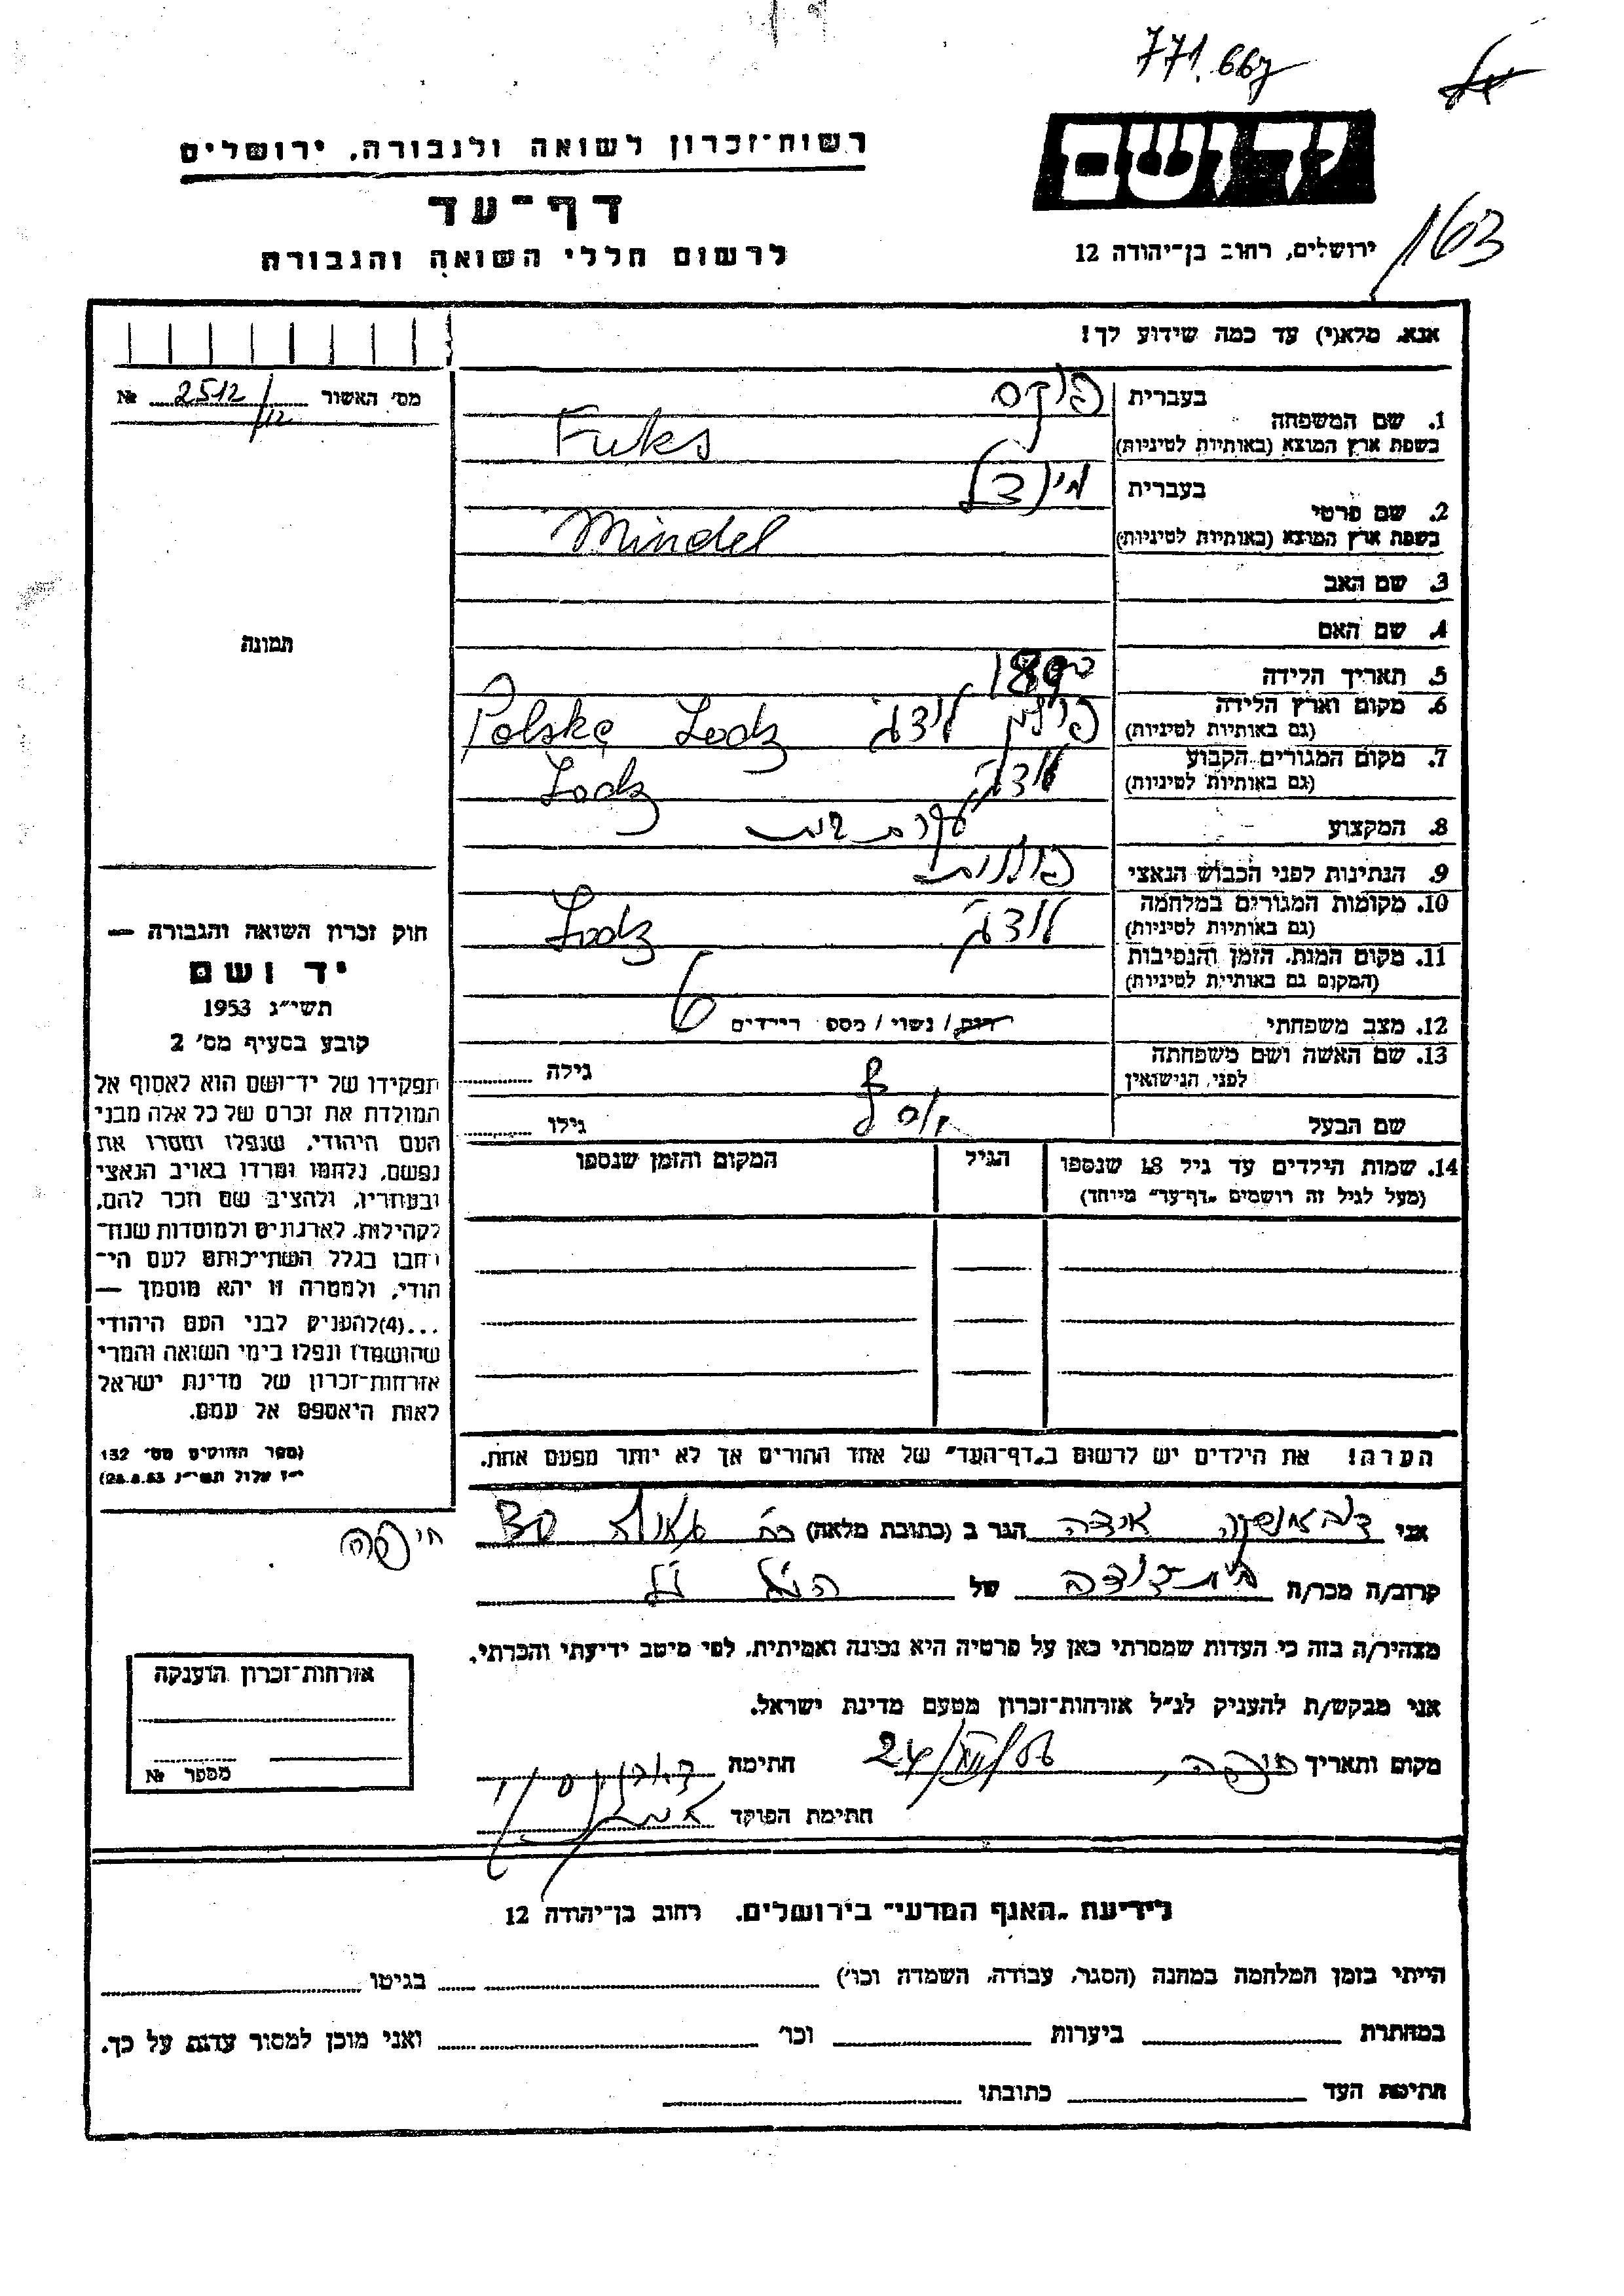 771.667
יד ושם
רשות־זכרון לשואה ולגבורה, ירושלים
דף־עד
לרשום חללי השואה והגבורה
ירושלים, רחוב בן־יהודה 12
163
אנא, מלא(י) עד כמה שידוע לך!
מס׳ האשור 2512/12 №
תמונה
1. שם המשפחה
בעברית פוקס
בשפת ארץ המוצא (באותיות לטיניות) Fuks
2. שם פרטי
בעברית מינדל
בשפת ארץ המוצא (באותיות לטיניות) Mindel
3. שם האב
4. שם האם
5. תאריך הלידה 1890
6. מקום וארץ הלידה
(גם באותיות לטיניות) פולין לודג׳ Lodz Polske
7. מקום המגורים הקבוע
(גם באותיות לטיניות) לודג׳ Lodz
8. המקצוע עקרת בית
9. הנתינות לפני הכבוש הנאצי פולנית
10. מקומות המגורים במלחמה
(גם באותיות לטיניות) לודג׳ Lodz
11. מקום המות, הזמן והנסיבות
(המקום גם באותיות לטיניות)
12. מצב משפחתי רוק / נשוי / מספ הילדים 6
13. שם האשה ושם משפחתה
לפני הנישואין גילה
שם הבעל גילו
14. שמות הילדים עד גיל 18 שנספו
(מעל לגיל זה רושמים „דף־עד״ מיוחד)
הגיל
המקום והזמן שנספו
הערה! את הילדים יש לרשום ב„דף־העד״ של אחד ההורים אך לא יותר מפעם אחת.
חוק זכרון השואה והגבורה —
יד ושם
תשי״ג 1953
קובע בסעיף מס׳ 2
תפקידו של יד־ושם הוא לאסוף אל
המולדת את זכרם של כל אלה מבני
העם היהודי, שנפלו ומסרו את
נפשם, נלחמו ומרדו באויב הנאצי
ובעוזריו, ולהציב שם וזכר להם,
לקהילות, לארגונים ולמוסדות שנח־
רבו בגלל השתייכותם לעם הי־
הודי, ולמטרה זו יהא מוסמך —
...(4)להעניק לבני העם היהודי
שהושמדו ונפלו בימי השואה והמרי
אזרחות־זכרון של מדינת ישראל
לאות היאספם אל עמם.
(ספר החוקים מס׳ 132
י״ז אלול תשי״ג 28.8.53)
אני אידה הגר ב (כתובת מלאה) חיפה
קרוב/ה מכר/ה בת דודה של הנ״ל
מצהיר/ה בזה כי העדות שמסרתי כאן על פרטיה היא נכונה ואמיתית, לפי מיטב ידיעתי והכרתי.
אני מבקש/ת להעניק לנ״ל אזרחות־זכרון מטעם מדינת ישראל.
מקום ותאריך חיפה, 24/VII/56 חתימה
חתימת הפוקד
אזרחות־זכרון הוענקה
מספר №
לידיעת „האגף המדעי״ בירושלים, רחוב בן־יהודה 12
הייתי בזמן המלחמה במחנה (הסגר, עבודה, השמדה וכו׳) בגיטו
במחתרת ביערות וכו׳ ואני מוכן למסור עדות על כך.
חתימת העד כתובתו